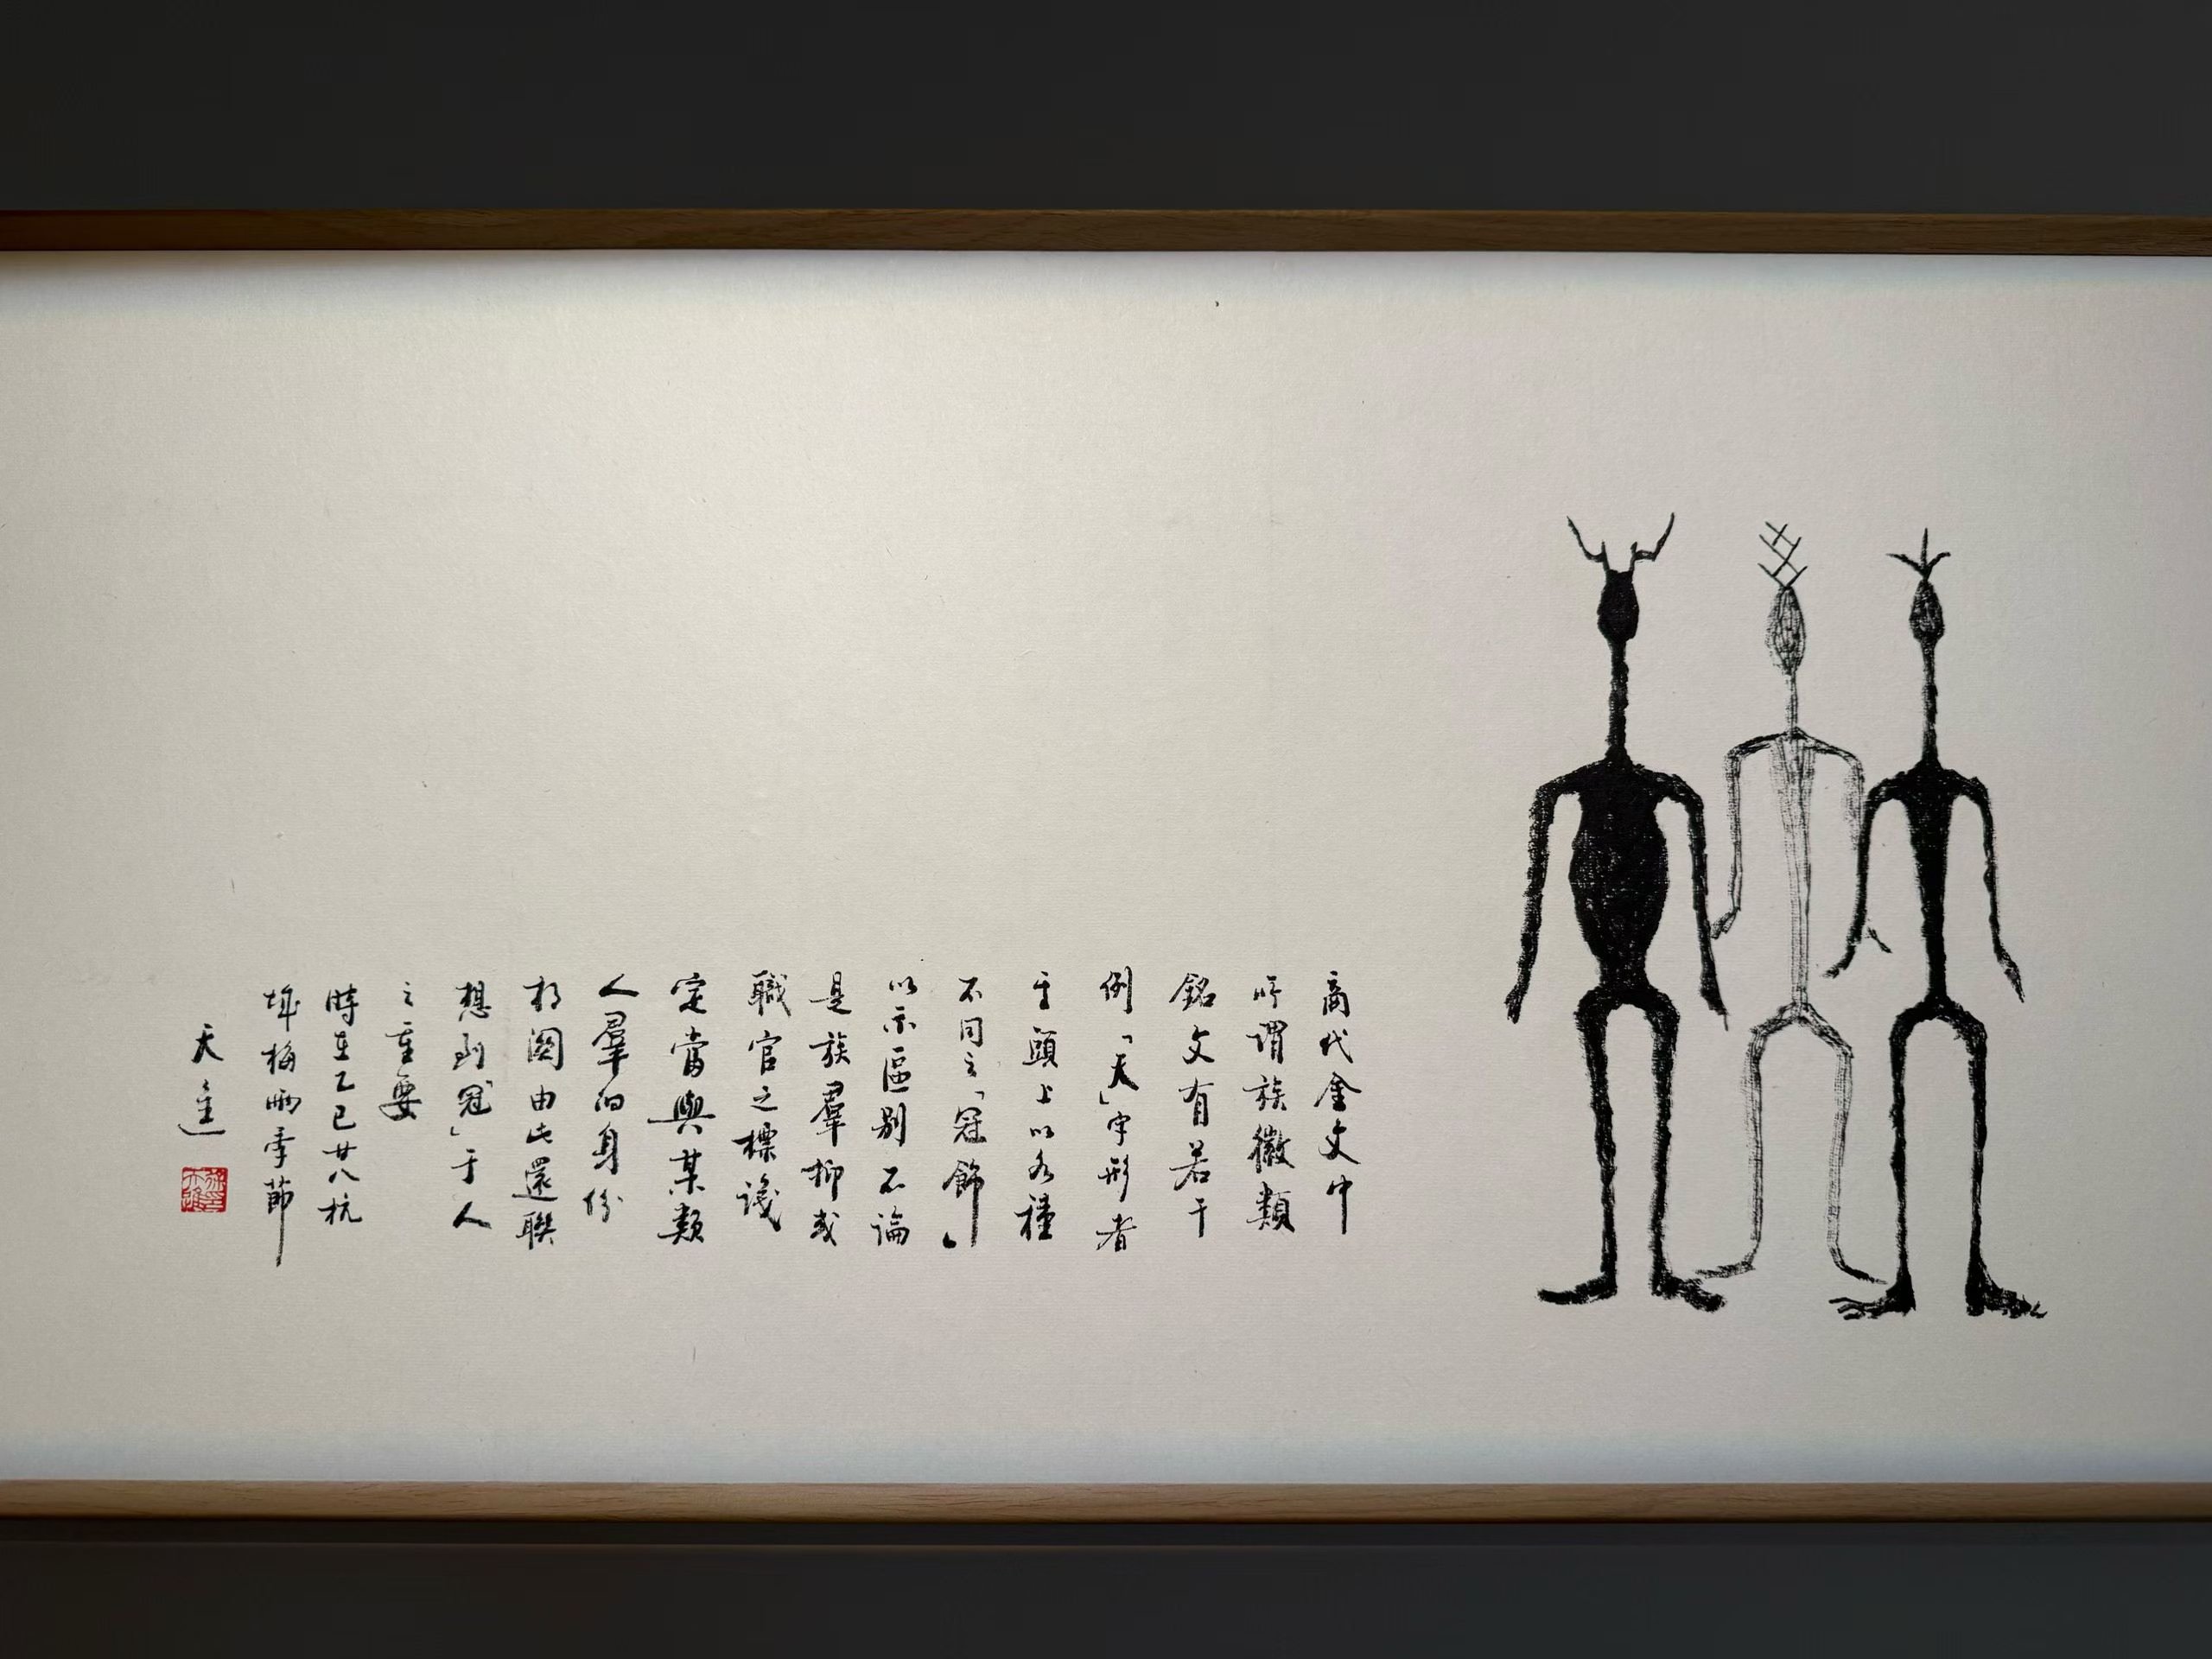 商代金文中
所謂族徽類
銘文有若干
例「天」字形者
于頭上以各種
不同之「冠飾」
以示區别不論
是族羣抑或
職官之標識
定當與某類
人羣的身份
相関由此還聯
想到「冠」于人
之重要
時在乙巳廿八杭
垾梅雨季節
天